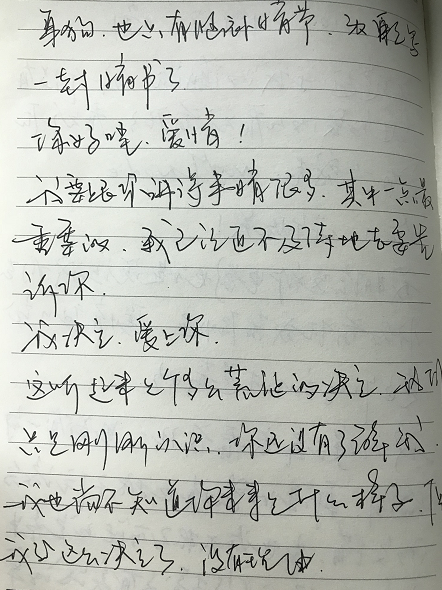 身的. 也只有随时的情节. 致
一封情书了
你好哇. 爱情!
我要跟你讲得事情很多. 其中一点最
重要的. 我已经迫不及待地去要告
诉你.
我决定. 爱上你.
这听起来是个多么荒诞的决定.
只是刚刚认识. 你还没有了解我.
我也尚不知道你未来是什么样子.
我就这么决定了. 没有理由.